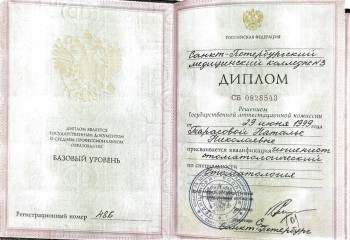 ДИПЛОМ ЯВЛЯЕТСЯ
ГОСУДАРСТВЕННЫМ ДОКУМЕНТОМ
О СРЕДНЕМ ПРОФЕССИОНАЛЬНОМ
ОБРАЗОВАНИИ
БАЗОВЫЙ УРОВЕНЬ
Регистрационный номер 486
РОССИЙСКАЯ ФЕДЕРАЦИЯ
Санкт-Петербургский
медицинский колледж №3
ДИПЛОМ
СБ 0828543
Решением
Государственной аттестационной комиссии
от 29 июня 1999 года
Тарасовой Наталье
Николаевне
присваивается квалификация гигиенист
стоматологический
по специальности
Стоматология
Санкт-Петербург